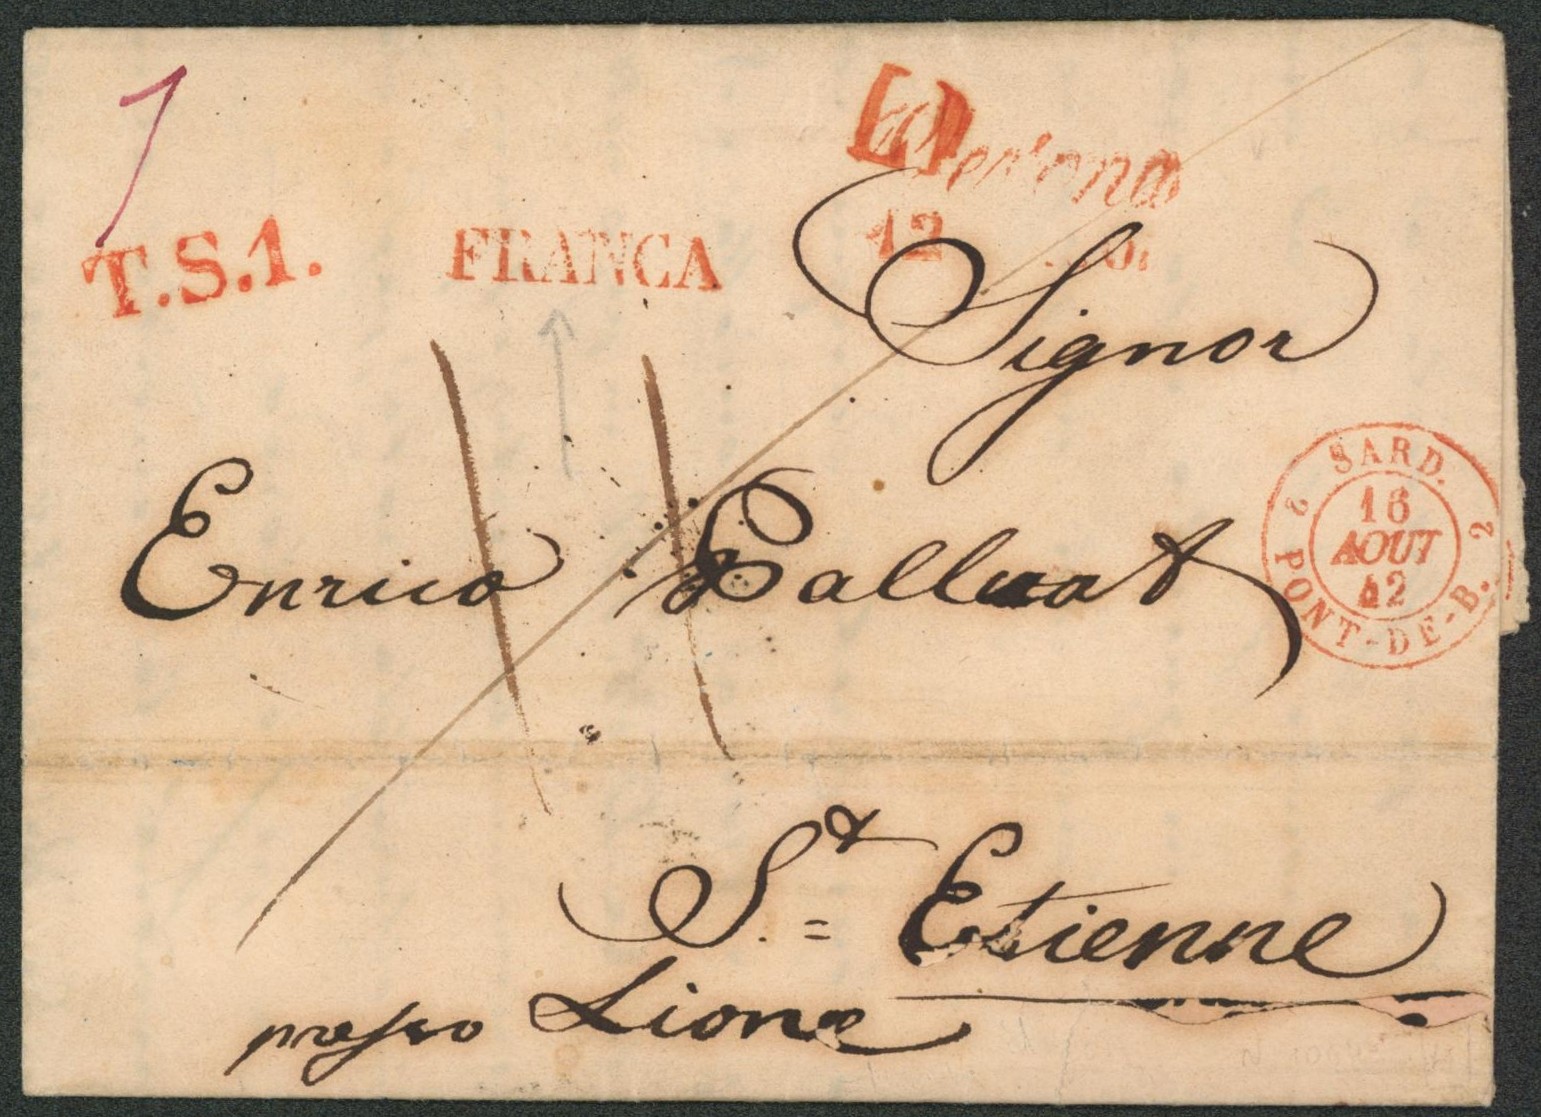 T.S.1.
FRANCA
Verona
12
Signor
Enrico Palluat
SARD.
16
AOUT
42
2 PONT-DE-B. 2
St = Etienne
presso Lione